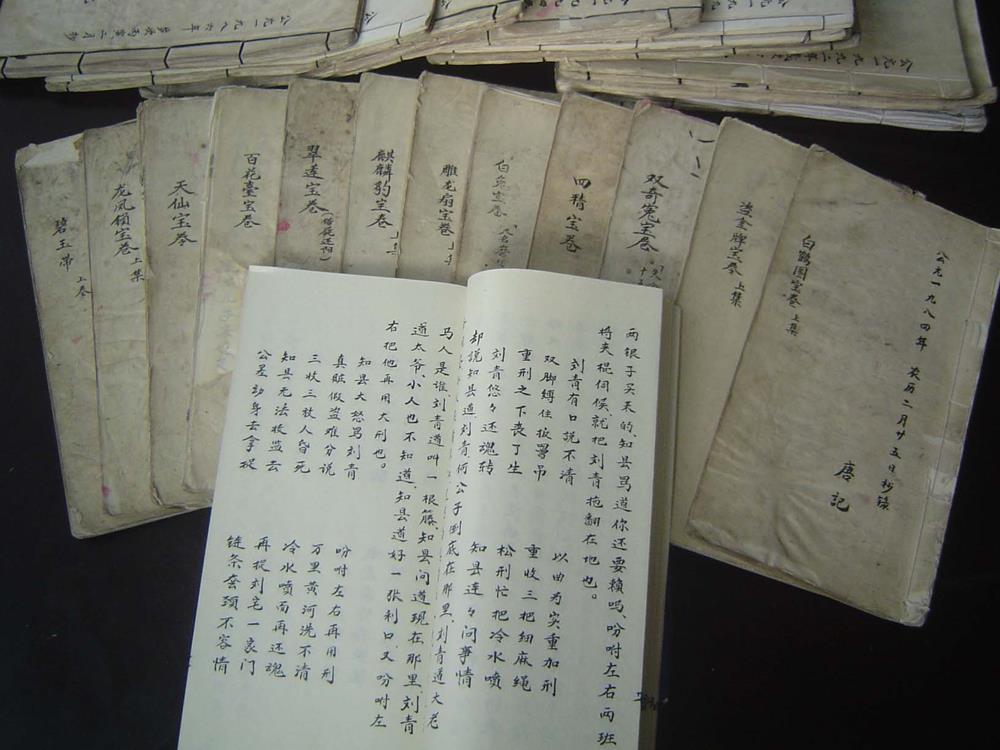 公元一九八四年 农历二月廿五日抄录
唐記
白鹤图宝卷 上集
盗金牌宝卷 上集
双奇冤宝卷
四精宝卷
白兔宝卷
雕龙扇宝卷 上
麒麟豹宝卷 上集
翠莲宝卷
百花臺宝卷
天仙宝卷
龙凤锁宝卷 上集
碧玉带 上卷
两银子买来的,知县骂道你还要赖吗,吩咐左右两班
将夹棍伺侯,就把刘青拖翻在地也。
刘青有口说不清 以曲为实重加刑
双脚缚住披罗吊 重收三把细麻绳
重刑之下丧了生 松刑忙把冷水喷
刘青悠々还魂转 知县连々问事情
却说知县道刘青何公子倒底在那里,刘青道大老
马人是谁,刘青道叫一根藤,知县问道现在那里刘青
道太爷,小人也不知道,知县道好一张利口又吩咐左
右把他再用大刑也。
知县大怒骂刘青 吩咐左右再用刑
真赃假盗难分说 万里黄河洗不清
三收三放人昏死 冷水喷面再还魂
知县无法收监去 再提刘宅一家门
公差动身去拿捉 链条套颈不容情